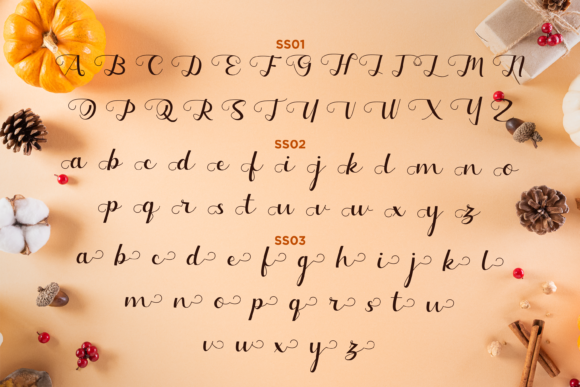 SS01
A B C D E F G H I J L M N
O P Q R S T U V W X Y Z
SS02
a b c d e f i j k l m n o
p q r s t u v w x y z
SS03
a b c d e f g h i j k l
m n o p q r s t u
v w x y z